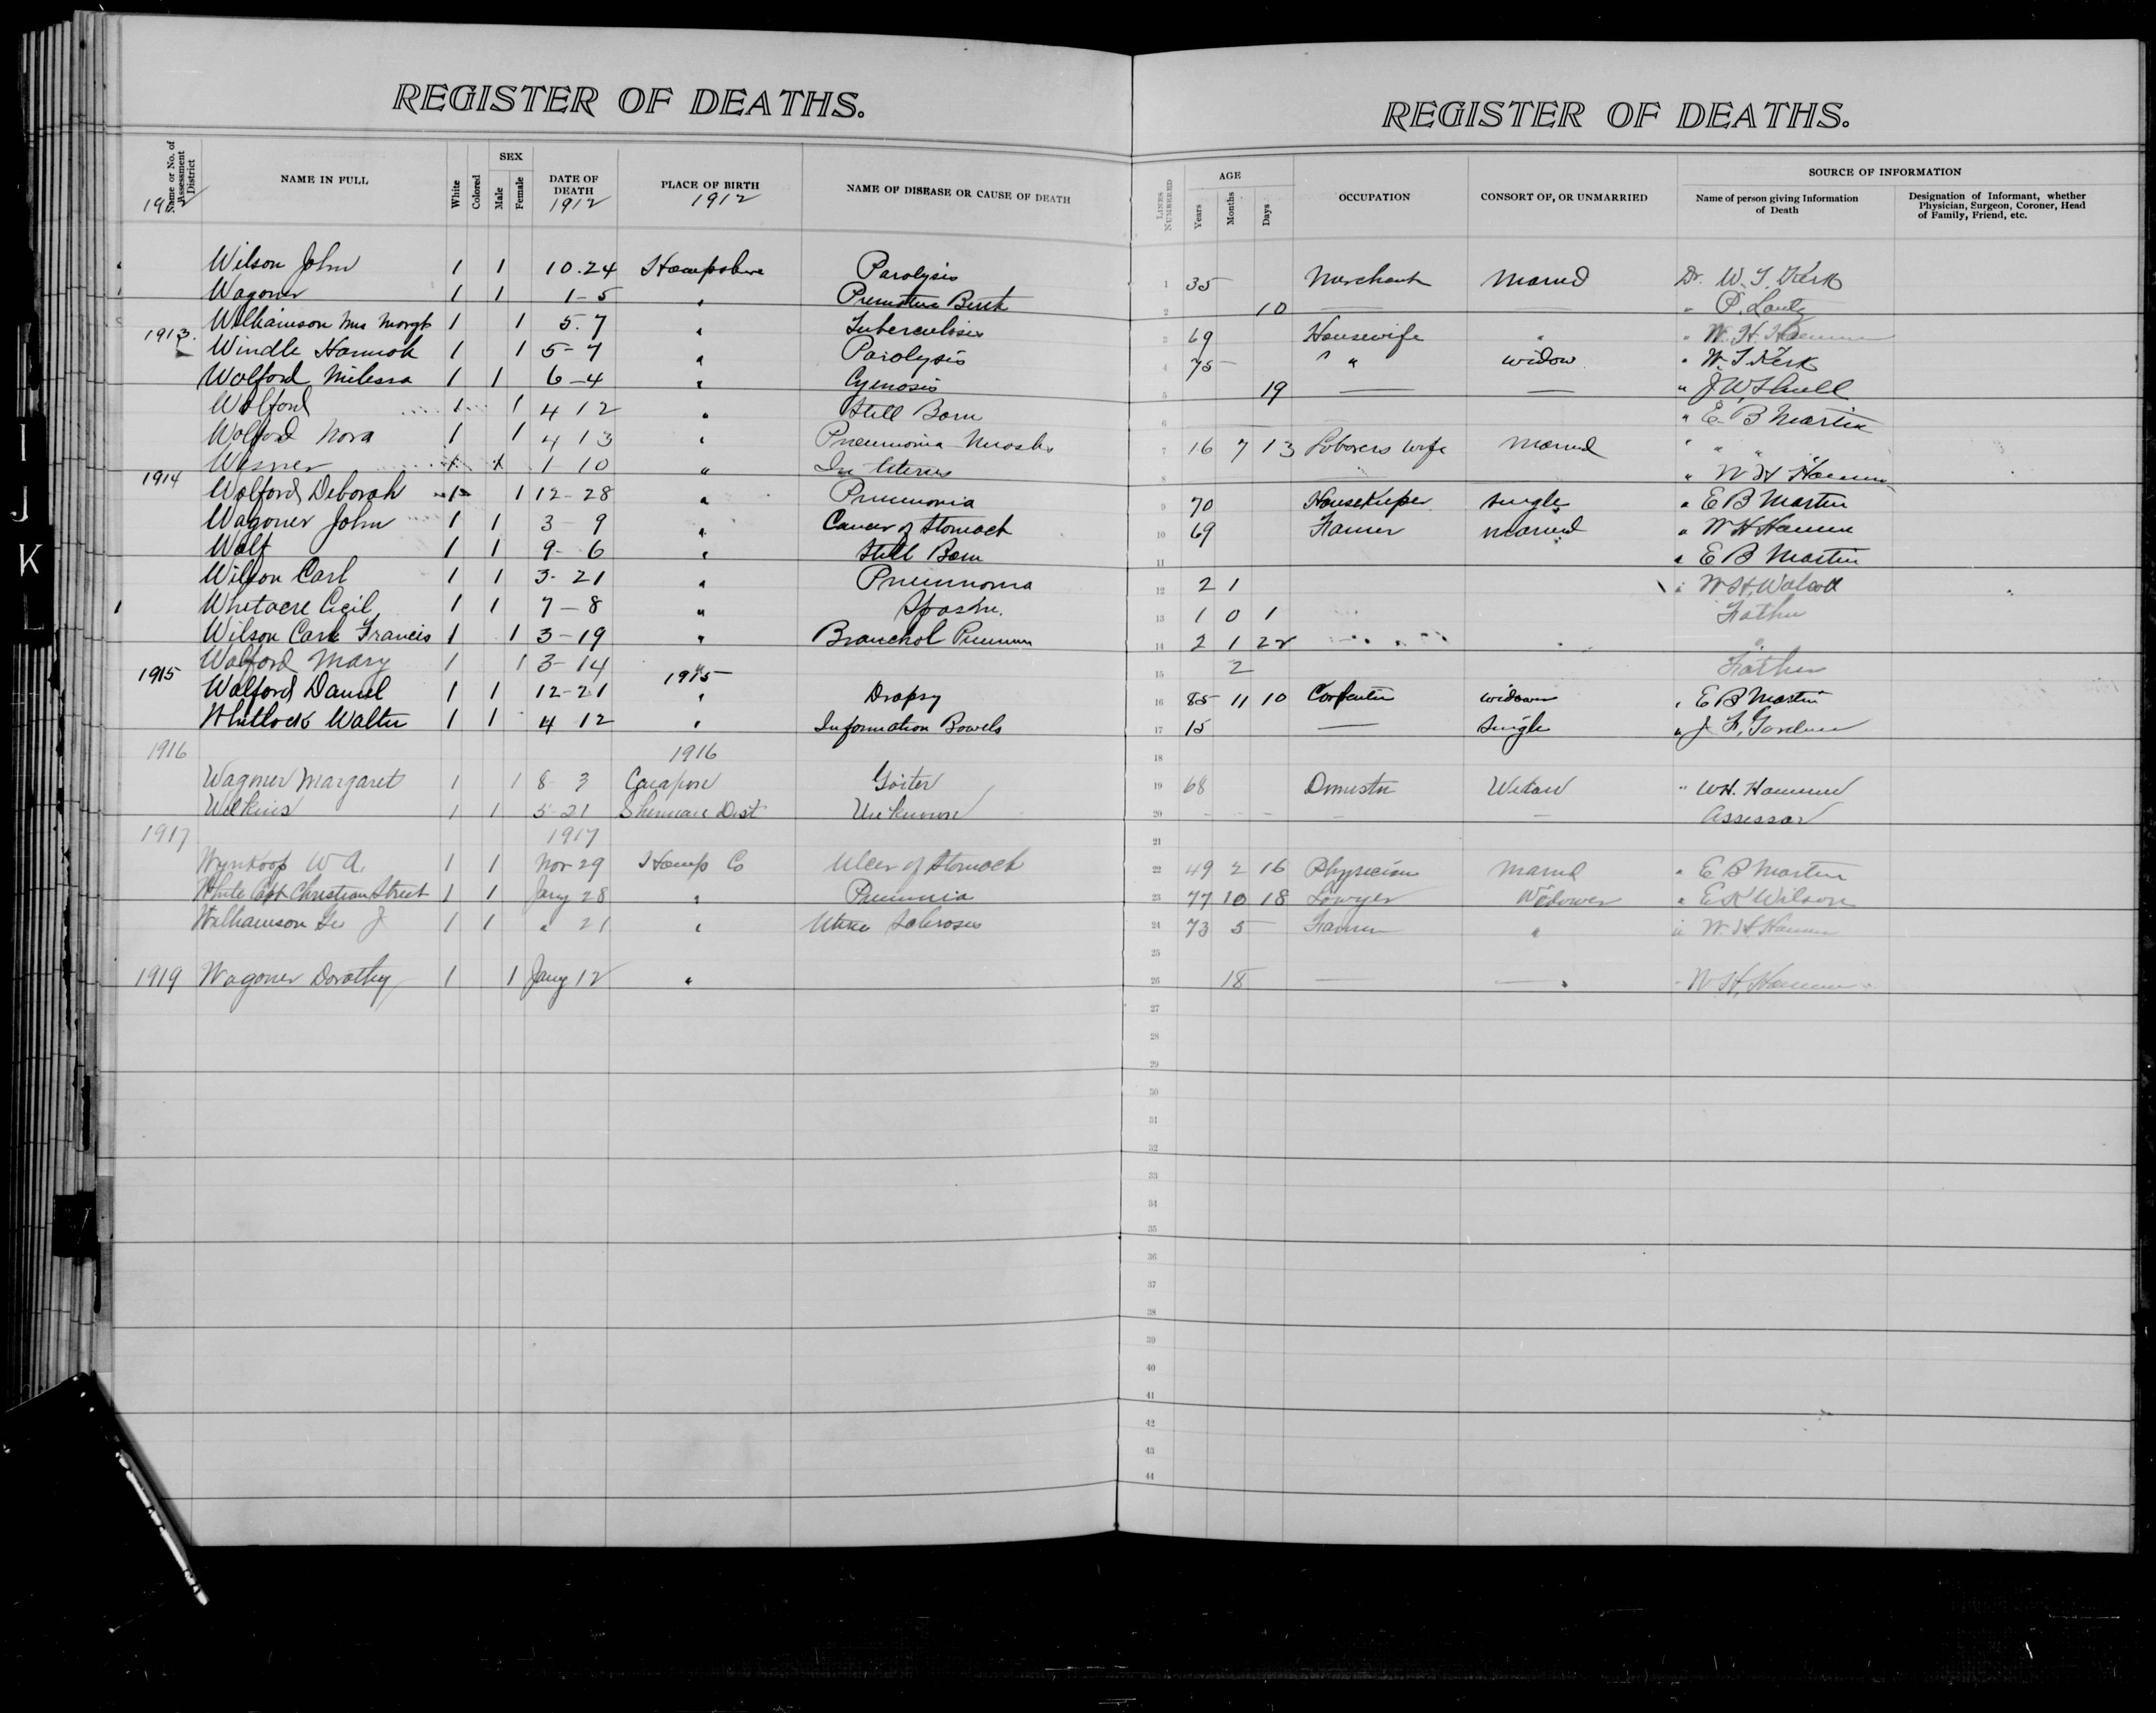 REGISTER OF DEATHS. REGISTER OF DEATHS.
Name or No. of Assessment District NAME IN FULL White Colored SEX Male Female DATE OF DEATH PLACE OF BIRTH NAME OF DISEASE OR CAUSE OF DEATH LINES NUMBERED AGE Years Months Days OCCUPATION CONSORT OF, OR UNMARRIED SOURCE OF INFORMATION Name of person giving Information of Death Designation of Informant, whether Physician, Surgeon, Coroner, Head of Family, Friend, etc.
1912 1912 1912
Wilson John 1 1 10.24 Hampshire Paralysis 1 35 Merchant Marred Dr. W. T. Kerk
Wagoner 1 1 1-5 " Premature Birth 2 10 — — " P. Lantz
Williamson Mrs Morgt 1 1 5.7 " Tuberculosis 3 69 Housewife " " W. H.
1913. Windle Hannah 1 1 5-7 " Paralysis 4 75 " " widow " W. T. Kerk
Wolford Milessa 1 1 6-4 " Cyenosis 5 19 — — " J W Shull
Wolford 1 1 4 12 " Still Born 6 " E B Martin
Wolford Nora 1 1 4 13 " Pneumonia 7 16 7 13 Laborers wife Marred " " "
1 1 1 10 " In Uterus 8 " W H
1914 Wolford Deborah 1 1 12-28 " Pneumonia 9 70 Housekeeper single " E B Martin
Wagoner John 1 1 3 9 " Cancer of Stomach 10 69 Farmer married " W H
Wolf 1 1 9-6 " Still Born 11 " E B Martin
Wilson Carl 1 1 3-21 " Pneumnoma 12 2 1 " W H
Whitacre Cecil 1 1 7-8 " Spasm. 13 1 0 1 Father
Wilson Carl Francis 1 1 3-19 " 14 2 1 22 "
Wolford Mary 1 1 3-14 15 2 Father
1915 1915
Wolford Daniel 1 1 12-21 " Dropsy 16 85 11 10 Carpenter widower " E B Martin
Whitlock Walter 1 1 4 12 " Information Bowels 17 15 — Single " J F, Gardner
1916 1916 18
Wagoner Margaret 1 1 8 3 Cacapon Goiter 19 68 Domestic Widow " WH.
Wilkins 1 1 5-21 Sherman Dist Unknown 20 - - - — — Assessor
1917 1917 21
Wynkoop W A. 1 1 Nov 29 Hamp Co Ulcer of Stomach 22 49 2 16 Physician Marred " E B Martin
White Capt Christian Street 1 1 Jany 28 " 23 77 10 18 Lawyer Widower " E K Wilson
Williamson Geo J 1 1 " 21 " 24 73 5 Farmer " " W H
25
1919 Wagoner Dorothy 1 1 Jany 12 " 26 18 — — " W H,
27
28
29
30
31
32
33
34
35
36
37
38
39
40
41
42
43
44
I
J
K
L